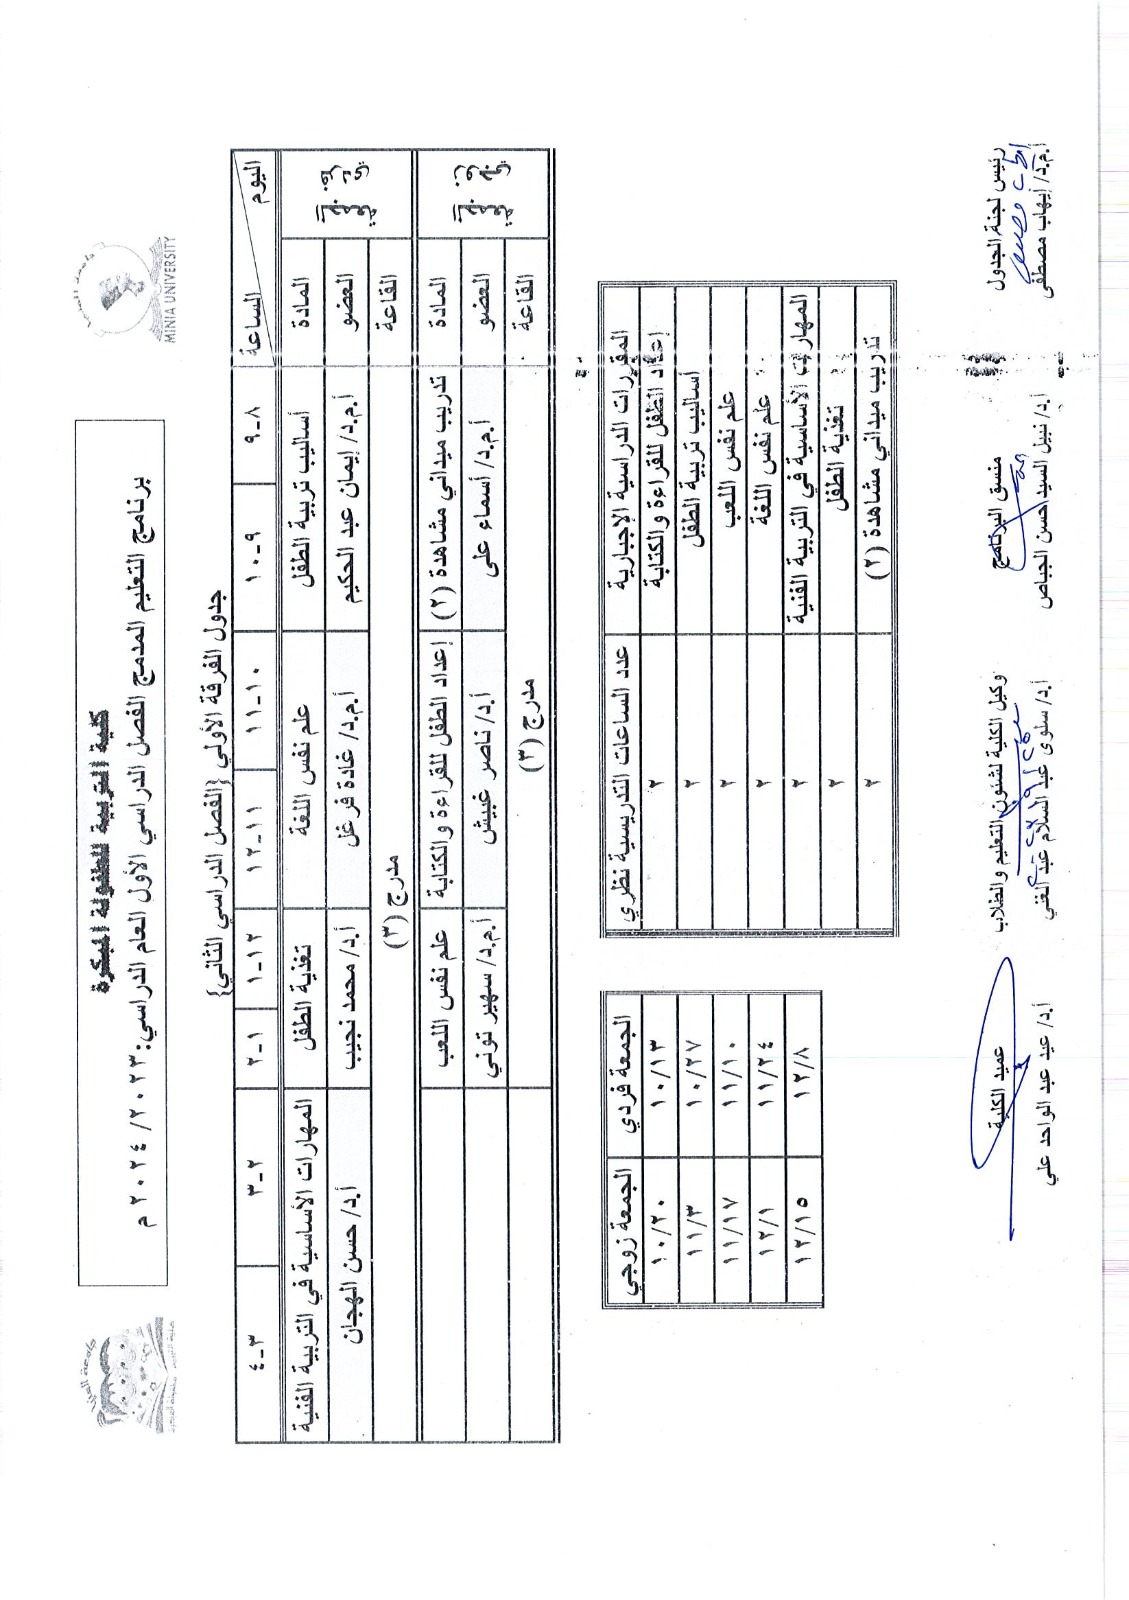 كلية التربية للطفولة المبكرة
برنامج التعليم المدمج الفصل الدراسي الأول العام الدراسي: ٢٠٢٣/ ٢٠٢٤ م
MINIA UNIVERSITY
جدول الفرقة الأولي {الفصل الدراسي الثاني}
اليوم الساعة ٨-٩ ٩-١٠ ١٠-١١ ١١-١٢ ١٢-١ ١-٢ ٢-٣ ٣-٤
المادة أساليب تربية الطفل علم نفس اللغة تغذية الطفل المهارات الأساسية في التربية الفنية
العضو أ.م.د/ إيمان عبد الحكيم أ.م.د/ غادة فرغل أ.د/ محمد نجيب أ.د/ حسن الهجان
القاعة مدرج (٣)
المادة تدريب ميداني مشاهدة (٢) إعداد الطفل للقراءة والكتابة علم نفس اللعب
العضو أ.م.د/ أسماء على أ.د/ ناصر غبيش أ.م.د/ سهير توني
القاعة مدرج (٣)
المقررات الدراسية الإجبارية عدد الساعات التدريسية نظري
إعداد الطفل للقراءة والكتابة ٢
أساليب تربية الطفل ٢
علم نفس اللعب ٢
علم نفس اللغة ٢
المهارات الأساسية في التربية الفنية ٢
تغذية الطفل ٢
تدريب ميداني مشاهدة (٢) ٢
الجمعة فردي الجمعة زوجي
١٠/١٣ ١٠/٢٠
١٠/٢٧ ١١/٣
١١/١٠ ١١/١٧
١١/٢٤ ١٢/١
١٢/٨ ١٢/١٥
رئيس لجنة الجدول منسق البرنامج وكيل الكلية لشئون التعليم والطلاب عميد الكلية
أ.م.د/ إيهاب مصطفى أ.د/ نبيل السيد حسن الجباص أ.د/ سلوى عبد السلام عبد الغني أ.د/ عيد عبد الواحد علي